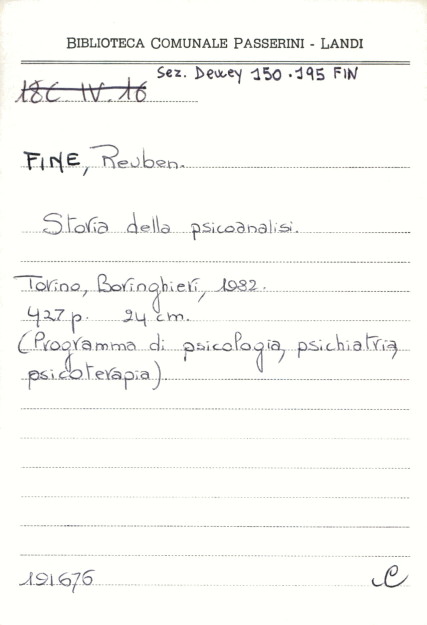 BIBLIOTECA COMUNALE PASSERINI - LANDI
Sez. Dewey 150.195 FIN
18C. IV. 16
FINE, Reuben.
Storia della psicoanalisi.
Torino, Boringhieri, 1982.
427 p. 24 cm.
(Programma di psicologia, psichiatria,
psicoterapia).
191676 C